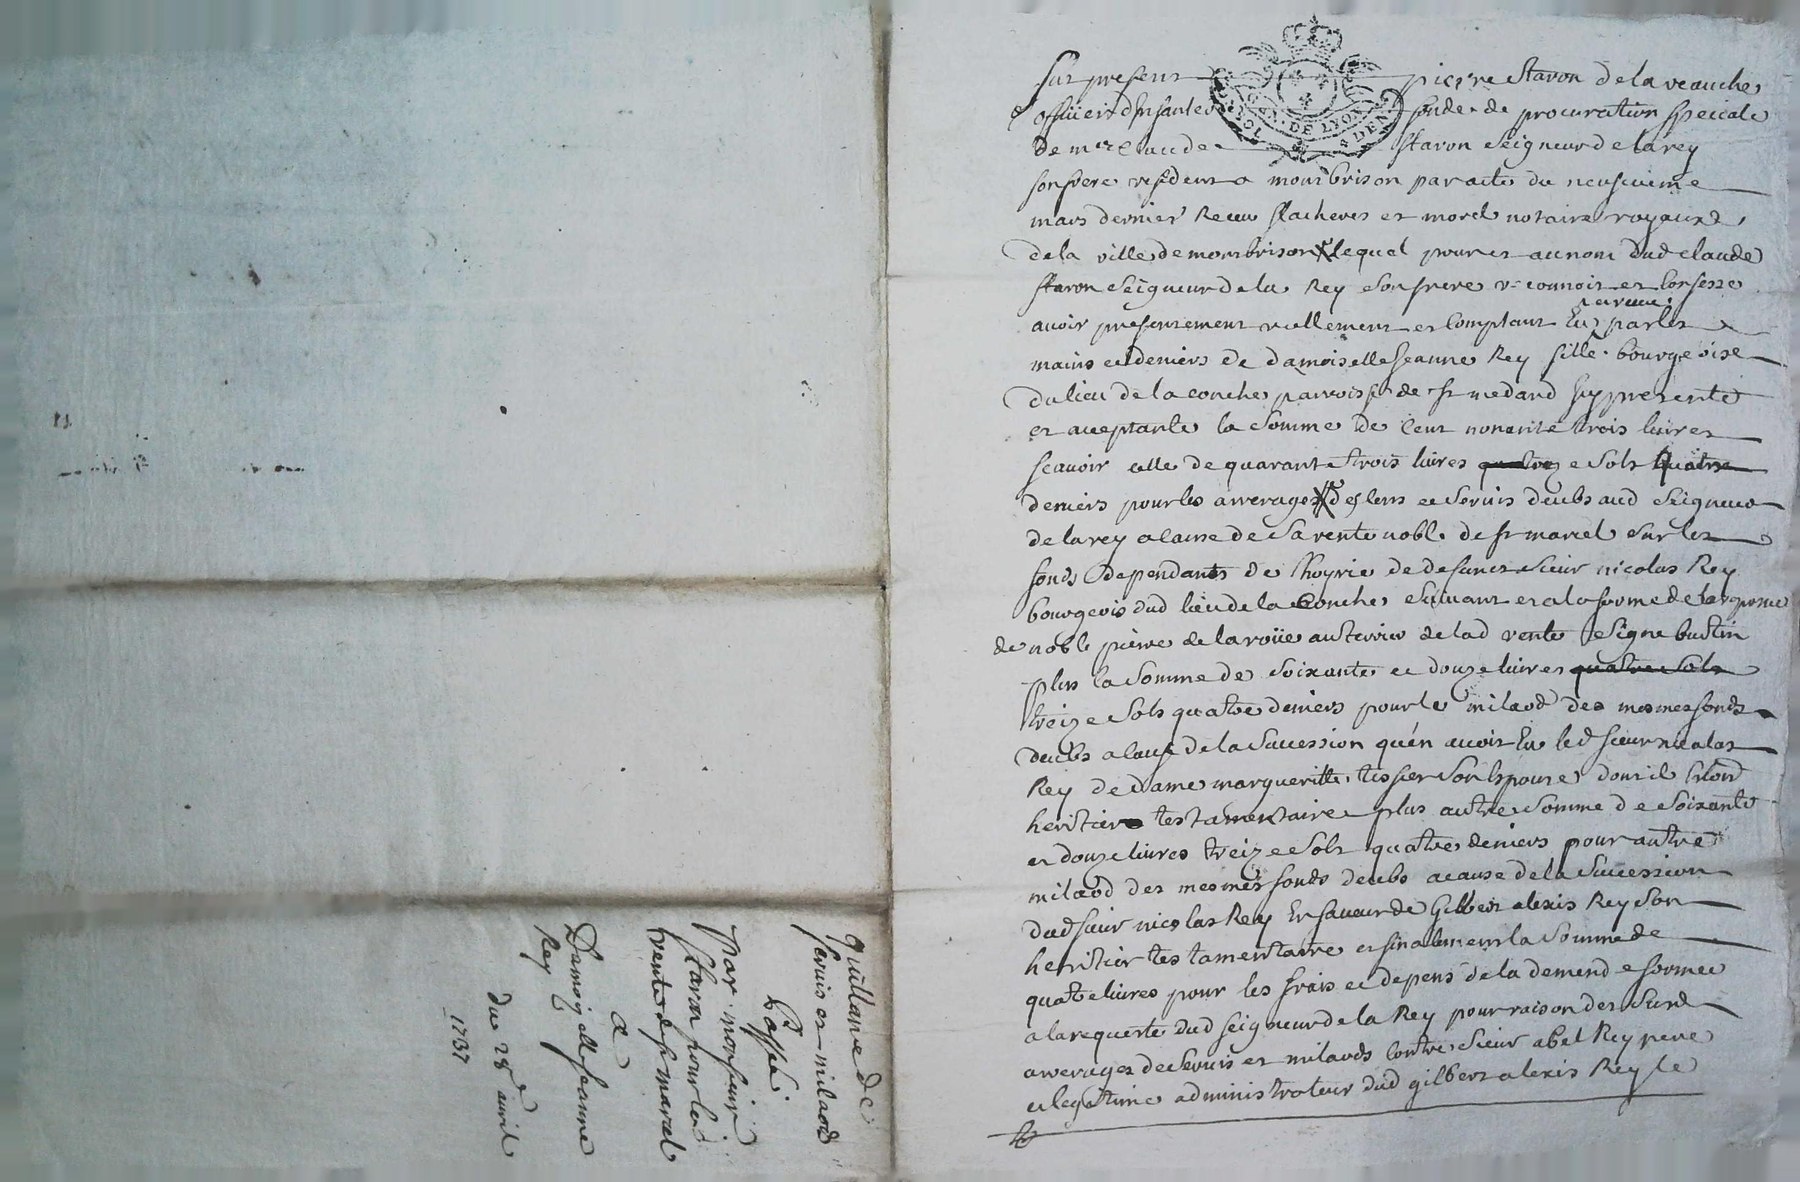 fut present pierre Staron de la veauche
officier d'Infanterie fondé de procuration speciale
de mre Claude Staron Seigneur de la rey
son frere resident a montbrison par acte du neufvieme
mars dernier Receu flacheres et morel notaire royaux
de la ville de montbrison lequel pour et au nom dud claude
staron Seigneur de la Rey son frere reconnoit et Confesse
avoir presentement reellement et Comptant Eu receu par les
mains et deniers de damoiselle Jeanne Rey fille bourgeoise
du lieu de la conche parroisse de st medard Icy presente
et aceptante la Somme de Cent nonante trois livres
scavoir celle de quarante trois livres Sols quatre
deniers pour les arrerages des Cens et Servis deubs aud Seigneur
de la rey a cause de Sa rente noble de st marcel Sur les
fonds dependants de l'hoyrie de defunct Sieur nicolas Rey
bourgeois dud lieu de la Conche Suivant et a la forme de la reponse
de noble pierre de la roüe au terrier de lad rente Signe bustin
plus la Somme de Soixante et douze livres quatre Sols
treize Sols quatre deniers pour le milaod des mesmes fonds
deubs a cause de la Succession qu'en avoit Eu led sieur nicolas
Rey de dame margueritte tissier Son Espouse dont il Estoit
heritier testamentaire plus autre Somme de Soixante
et douze livres treize Sols quatre deniers pour autre
milaod des mesmes fonds deubs a cause de la Succession
dud sieur nicolas Rey En faveur de Gilbert alexis Rey Son
heritier testamentaire et finalement la Somme de
quatre livres pour les frais et depens de la demende formée
a la requette dud Seigneur de la Rey pour raison des Susd
arrerages de Servis et milaods Contre Sieur abel Rey pere
et legitime administrateur dud gilbert alexis Rey le
quittance de
servis et milaod
passé
par monsieur
staron pour la
rente de st marcel
a
Damoiselle Jeanne
Rey
du 28e avril
1737
GEN. DE LYON